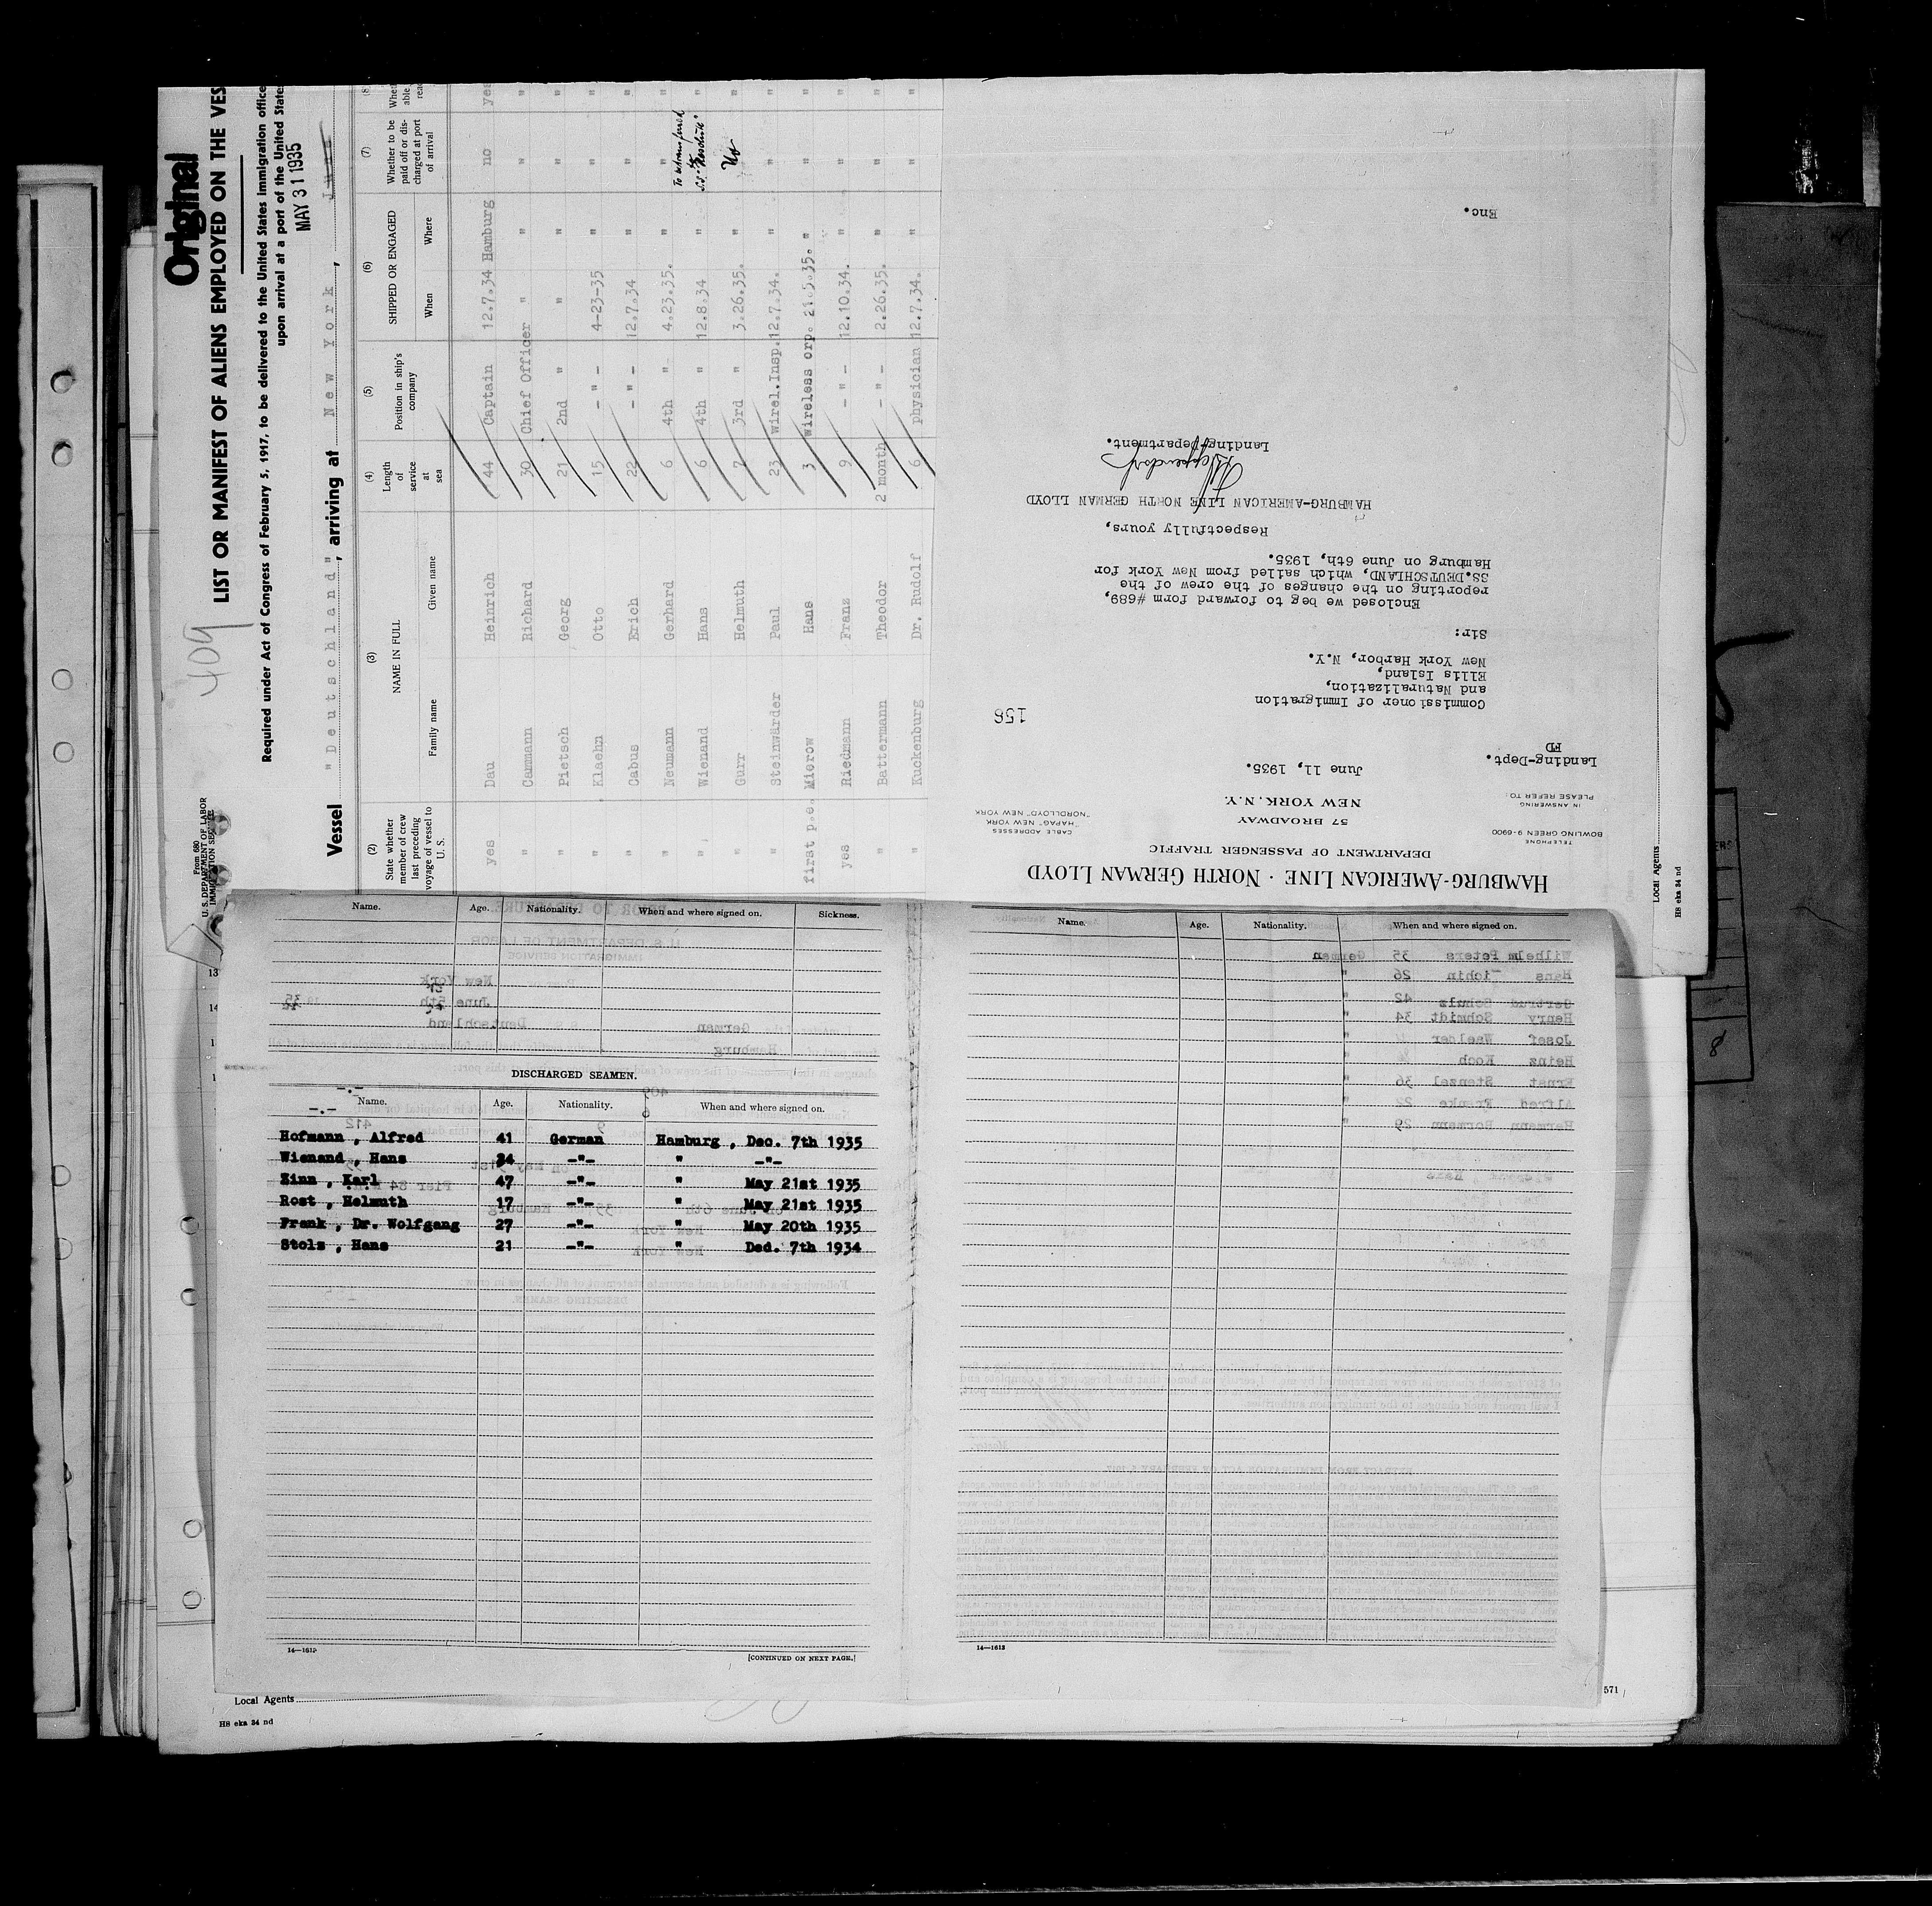 Original
LIST OR MANIFEST OF ALIENS EMPLOYED ON THE VES
Required under Act of Congress of February 5, 1917, to be delivered to the United States immigration office
upon arrival at a port of the United State
MAY 31 1935
409
From 680
U. S. DEPARTMENT OF LABOR
IMMIGRATION SERVICE
Vessel "Deutschland", arriving at New York, June
(2) State whether member of crew last preceding voyage of vessel to U. S.
(3) NAME IN FULL Family name Given name
(4) Length of service at sea
(5) Position in ship's company
(6) SHIPPED OR ENGAGED When Where
(7) Whether to be paid off or discharged at port of arrival
(8)
yes Dau Heinrich 44 Captain 12.7.34 Hamburg no yes
" Cammann Richard 30 Chief Officer " " " "
" Pietsch Georg 21 2nd " " " " "
" Klaehn Otto 15 - " - 4-23-35 " " "
" Cabus Erich 22 - " - 12.7.34 " " "
" Neumann Gerhard 6 4th " 4.23.35. " " "
" Wienand Hans 6 4th " 12.8.34 " To be transferred to S.S. "Resolute" "
" Gurr Helmuth 7 3rd " 3.26.35. " No "
" Steinwärder Paul 23 Wirel.Insp. 12.7.34. " " "
first p.e. Mierow Hans 3 Wireless orp. 21.5.35. " " "
yes Riedmann Franz 9 - " - 12.10.34. " " "
" Battermann Theodor 2 month - " - 2.26.35. " " "
" Kuckenburg Dr. Rudolf 6 physician 12.7.34. " " "
HAMBURG-AMERICAN LINE · NORTH GERMAN LLOYD
DEPARTMENT OF PASSENGER TRAFFIC
57 BROADWAY
NEW YORK, N.Y.
TELEPHONE
BOWLING GREEN 9-6900
IN ANSWERING
PLEASE REFER TO:
Landing-Dept.
FD
CABLE ADDRESSES
"HAPAG" NEW YORK
"NORDLLOYD" NEW YORK
June 11, 1935.
158
Commissioner of Immigration
and Naturalization,
Ellis Island,
New York Harbor, N.Y.
Sir:
Enclosed we beg to forward form #689,
reporting on the changes of the crew of the
SS.DEUTSCHLAND, which sailed from New York for
Hamburg on June 6th, 1935.
Respectfully yours,
HAMBURG-AMERICAN LINE NORTH GERMAN LLOYD
Landing-Department.
Enc.
Name. Age. Nationality. When and where signed on. Sickness.
DISCHARGED SEAMEN.
Name. Age. Nationality. When and where signed on.
Hofmann , Alfred 41 German Hamburg , Dec. 7th 1935
Wienand , Hans 34 -"- " -"-
Zinn , Karl 47 -"- " May 21st 1935
Rost , Helmuth 17 -"- " May 21st 1935
Frenk , Dr. Wolfgang 27 -"- " May 20th 1935
Stolz , Hans 21 -"- " Ded. 7th 1934
14—1613
[CONTINUED ON NEXT PAGE.]
Name. Age. Nationality. When and where signed on.
Wilhelm Peters 35 German
Hans 26 "
Gertrud Schulz 42 "
Henry Schmidt 34 "
Josef Waelder "
Heinz Koch "
Ernst Stenzel 36 "
Alfred Franke 22 "
Hermann Bormann 29 "
14—1613
Local Agents
HS eka 34 nd
Local Agents
HS eka 34 nd
571
8